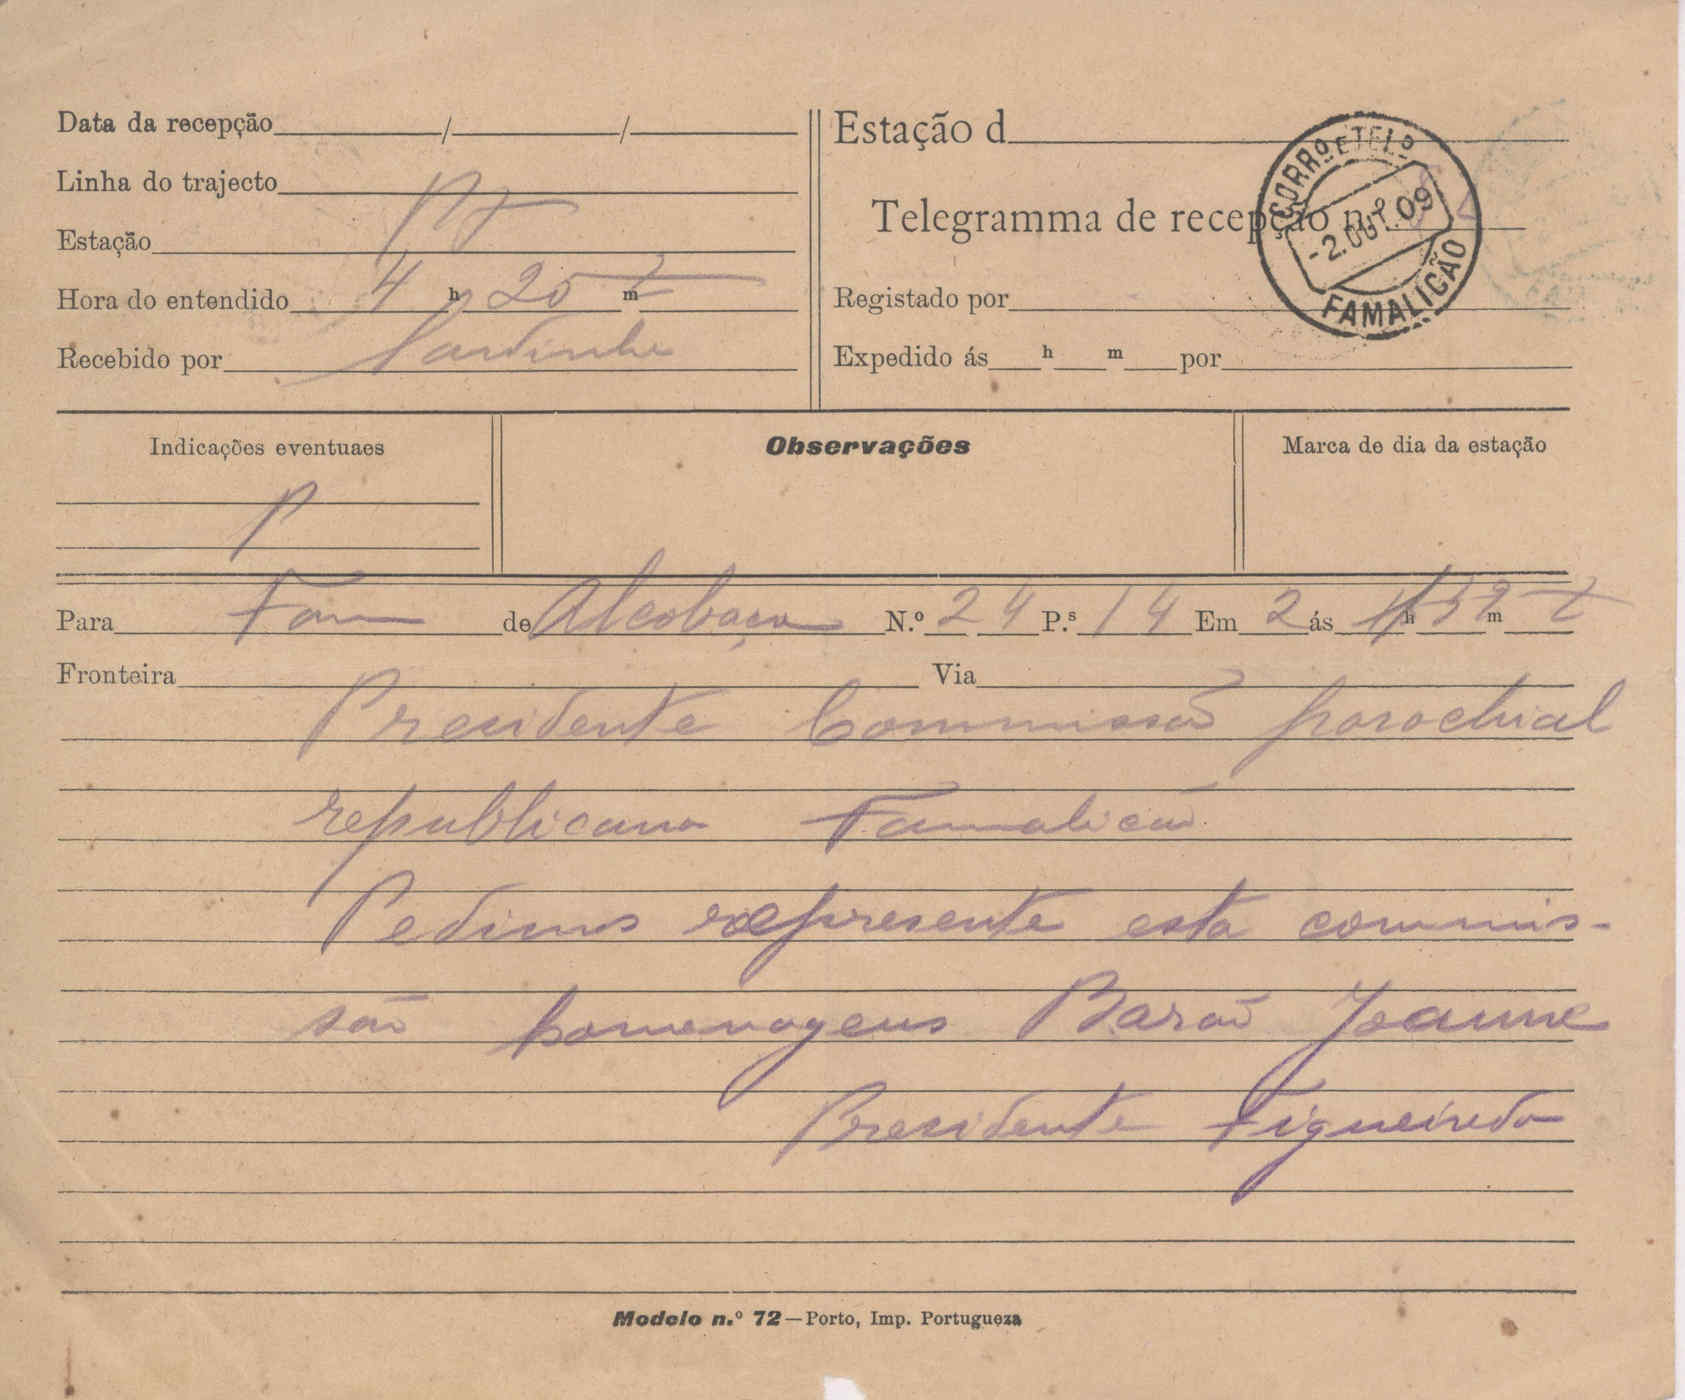 Data da recepção / /
Linha do trajecto
Estação
Hora do entendido 4 h 20 m t
Recebido por
Estação d
Telegramma de recepção n.º
Registado por
Expedido ás h m por
CORR.º E TEL.º
-2.OUT.09
FAMALICÃO
Indicações eventuaes
P
Observações
Marca de dia da estação
Para Fam de Alcobaça N.º 24 P.s 14 Em 2 ás h m t
Fronteira Via
Presidente Commissão parochial
republicana Famalicão
Pedimos represente esta commis-
são homenagens Barão Joanne
Presidente Figueiredo
Modelo n.º 72 — Porto, Imp. Portugueza